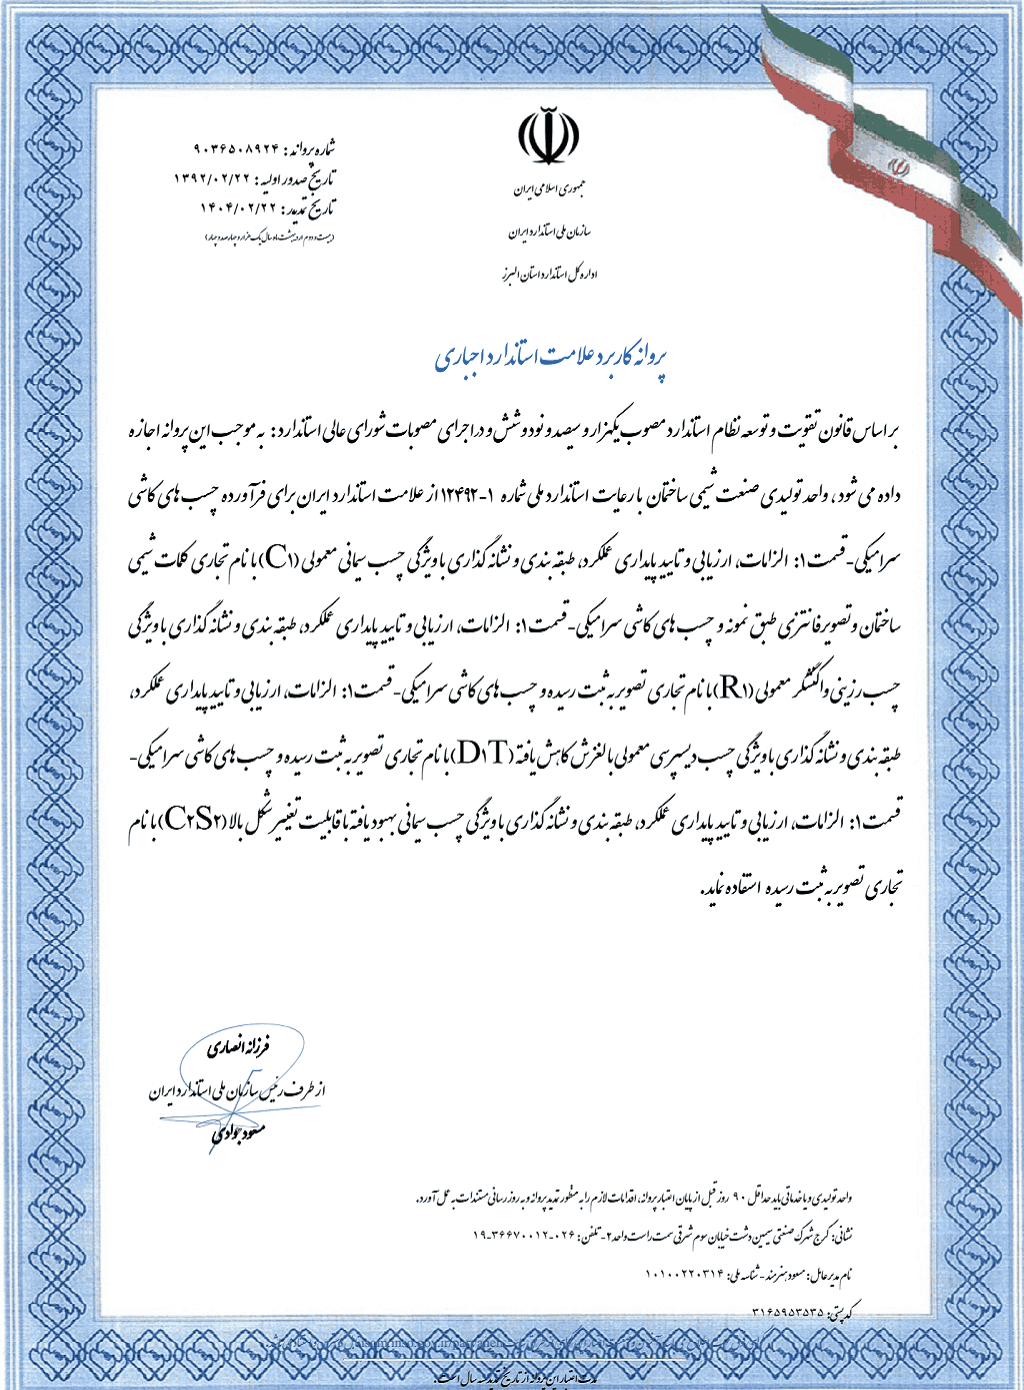 جمهوری اسلامی ایران
سازمان ملی استاندارد ایران
اداره کل استاندارد استان البرز
شماره پروانه : ۹۰۳۶۵۰۸۹۲۴
تاریخ صدور اولیه : ۱۳۹۲/۰۲/۲۲
تاریخ تمدید : ۱۴۰۴/۰۲/۲۲
(بیست و دوم اردیبهشت ماه سال یک هزار و چهارصد و چهار)
پروانه کاربرد علامت استاندارد اجباری
بر اساس قانون تقویت و توسعه نظام استاندارد مصوب یکهزار و سیصد و نود و شش و در اجرای مصوبات شورای عالی استاندارد : به موجب این پروانه اجازه
داده می شود ، واحد تولیدی صنعت شیمی ساختمان با رعایت استاندارد ملی شماره ۱-۱۲۴۹۲ از علامت استاندارد ایران برای فرآورده چسب های کاشی
سرامیکی-قسمت۱: الزامات، ارزیابی و تایید پایداری عملکرد، طبقه بندی و نشانه گذاری با ویژگی چسب سیمانی معمولی (C۱) با نام تجاری کلمات شیمی
ساختمان و تصویر فانتزی طبق نمونه و چسب های کاشی سرامیکی-قسمت۱: الزامات، ارزیابی و تایید پایداری عملکرد، طبقه بندی و نشانه گذاری با ویژگی
چسب رزینی واکنشگر معمولی (R۱) با نام تجاری تصویر به ثبت رسیده و چسب های کاشی سرامیکی-قسمت۱: الزامات، ارزیابی و تایید پایداری عملکرد،
طبقه بندی و نشانه گذاری با ویژگی چسب دیسپرسی معمولی با لغزش کاهش یافته (D۱T) با نام تجاری تصویر به ثبت رسیده و چسب های کاشی سرامیکی-
قسمت۱: الزامات، ارزیابی و تایید پایداری عملکرد، طبقه بندی و نشانه گذاری با ویژگی چسب سیمانی بهبود یافته با قابلیت تغییر شکل بالا (C۲S۲) با نام
تجاری تصویر به ثبت رسیده استفاده نماید.
فرزانه انصاری
از طرف رئیس سازمان ملی استاندارد ایران
مسعود جوادی
واحد تولیدی و یا خدماتی باید حداقل ۹۰ روز قبل از پایان اعتبار پروانه، اقدامات لازم را به منظور تمدید پروانه و به روز رسانی مستندات به عمل آورد.
نشانی: کرج شهرک صنعتی سیمین دشت خیابان سوم شرقی سمت راست واحد ۲- تلفن: ۰۲۶-۳۶۶۷۰۰۱۲-۱۹
نام مدیر عامل: مسعود هنرمند - شناسه ملی: ۱۰۱۰۰۲۲۰۳۱۴
کد پستی: ۳۱۶۵۹۵۳۵۳۵
مدت اعتبار این پروانه از تاریخ تمدید سه سال است.